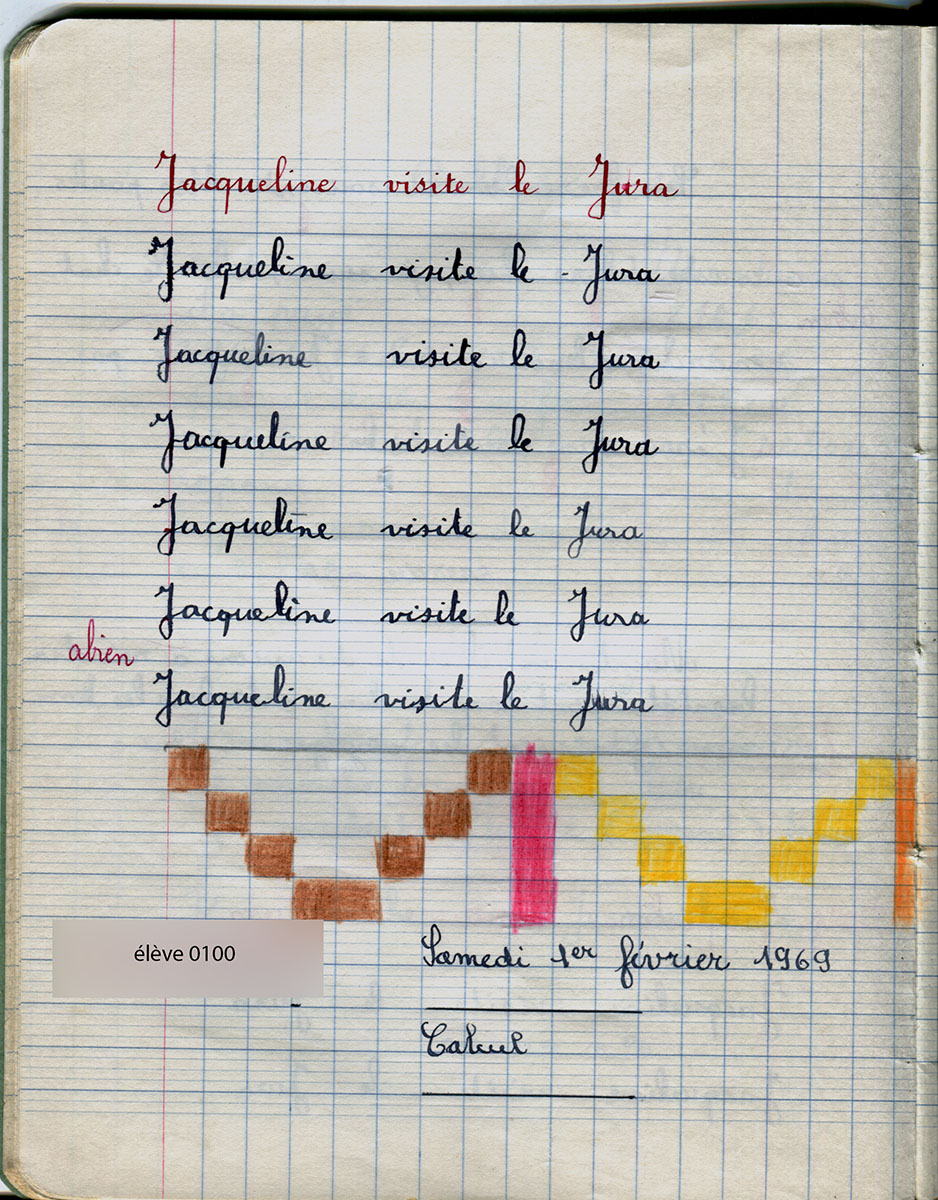 Jacqueline visite le Jura
Jacqueline visite le - Jura
Jacqueline visite le Jura
Jacqueline visite le Jura
Jacqueline visite le Jura
Jacqueline visite le Jura
abien
Jacqueline visite le Jura
élève 0100
Samedi 1er février 1969
Calcul